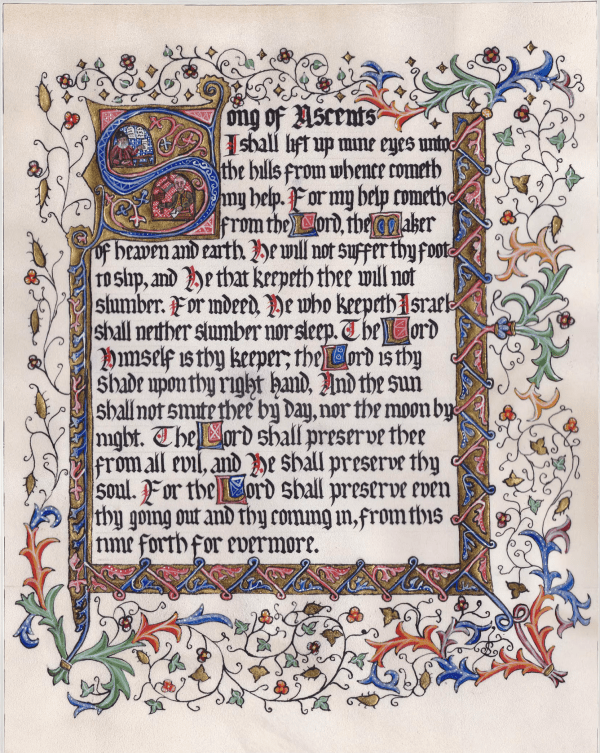 Song of Ascents
I shall lift up mine eyes unto
the hills from whence cometh
my help. For my help cometh
from the Lord, the Maker
of heaven and earth, He will not suffer thy foot
to slip, and He that keepeth thee will not
slumber. For indeed, He who keepeth Israel
shall neither slumber nor sleep. The Lord
Himself is thy keeper; the Lord is thy
shade upon thy right hand, And the sun
shall not smite thee by day, nor the moon by
night. The Lord shall preserve thee
from all evil, and He shall preserve thy
soul. For the Lord shall preserve even
thy going out and thy coming in, from this
time forth for evermore.